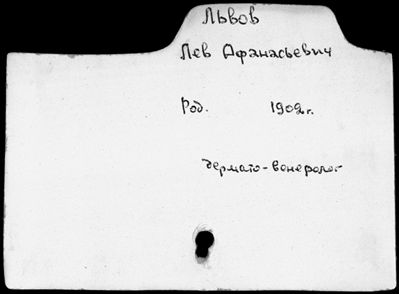 Львов
Лев Афанасьевич
Род. 1902г.
дермато-венеролог